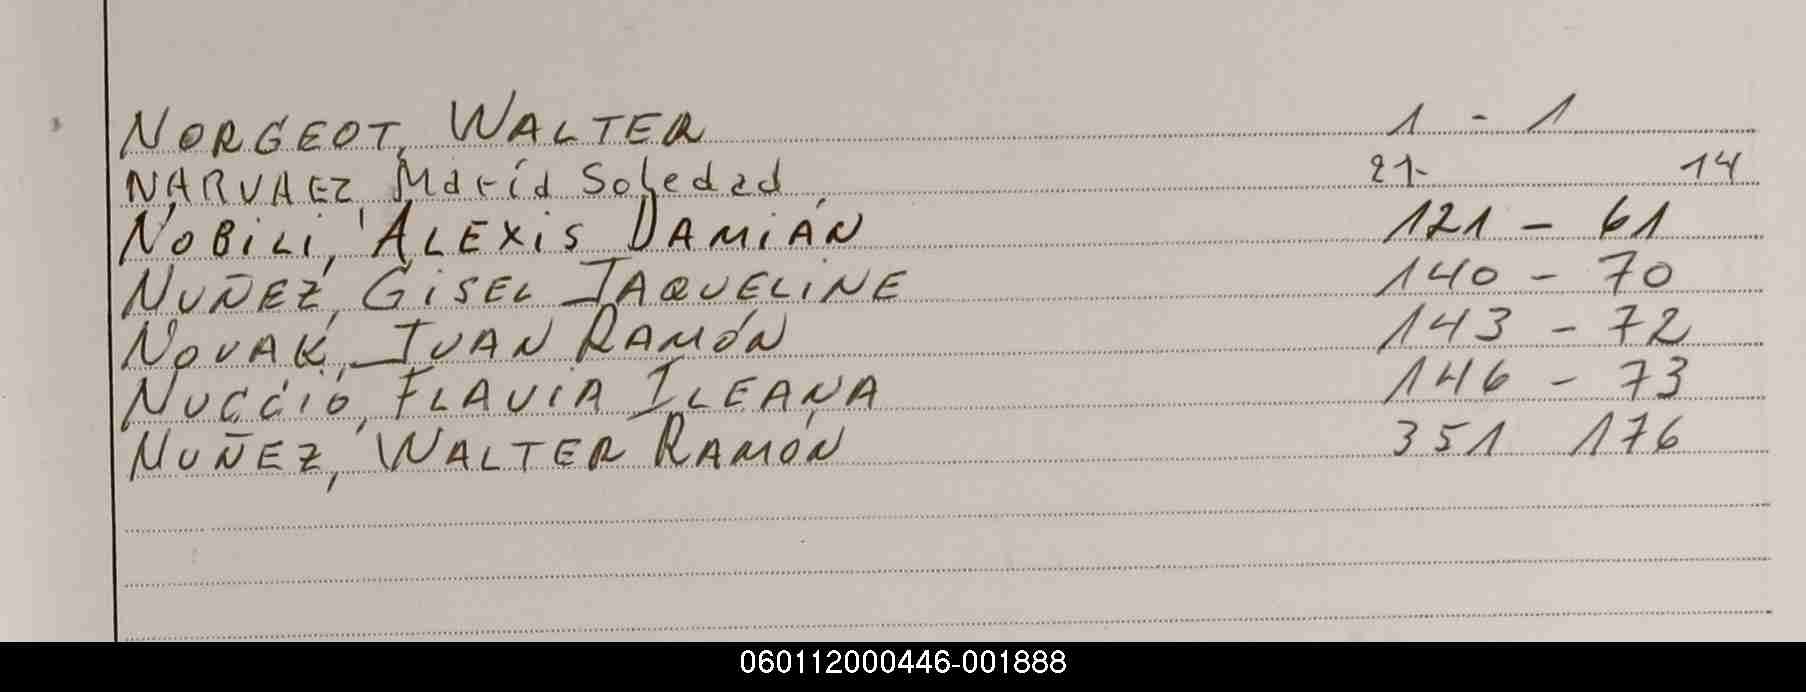 NORGEOT, WALTER 1 - 1
NARVAEZ María Soledad 21- 14
NOBILI, ALEXIS DAMIÁN 121 - 61
NUÑEZ, GISEL JAQUELINE 140 - 70
NOVAK, IVAN RAMÓN 143 - 72
NUCCIO, FLAVIA ILEANA 146 - 73
NUÑEZ, WALTER RAMÓN 351 176
060112000446-001888